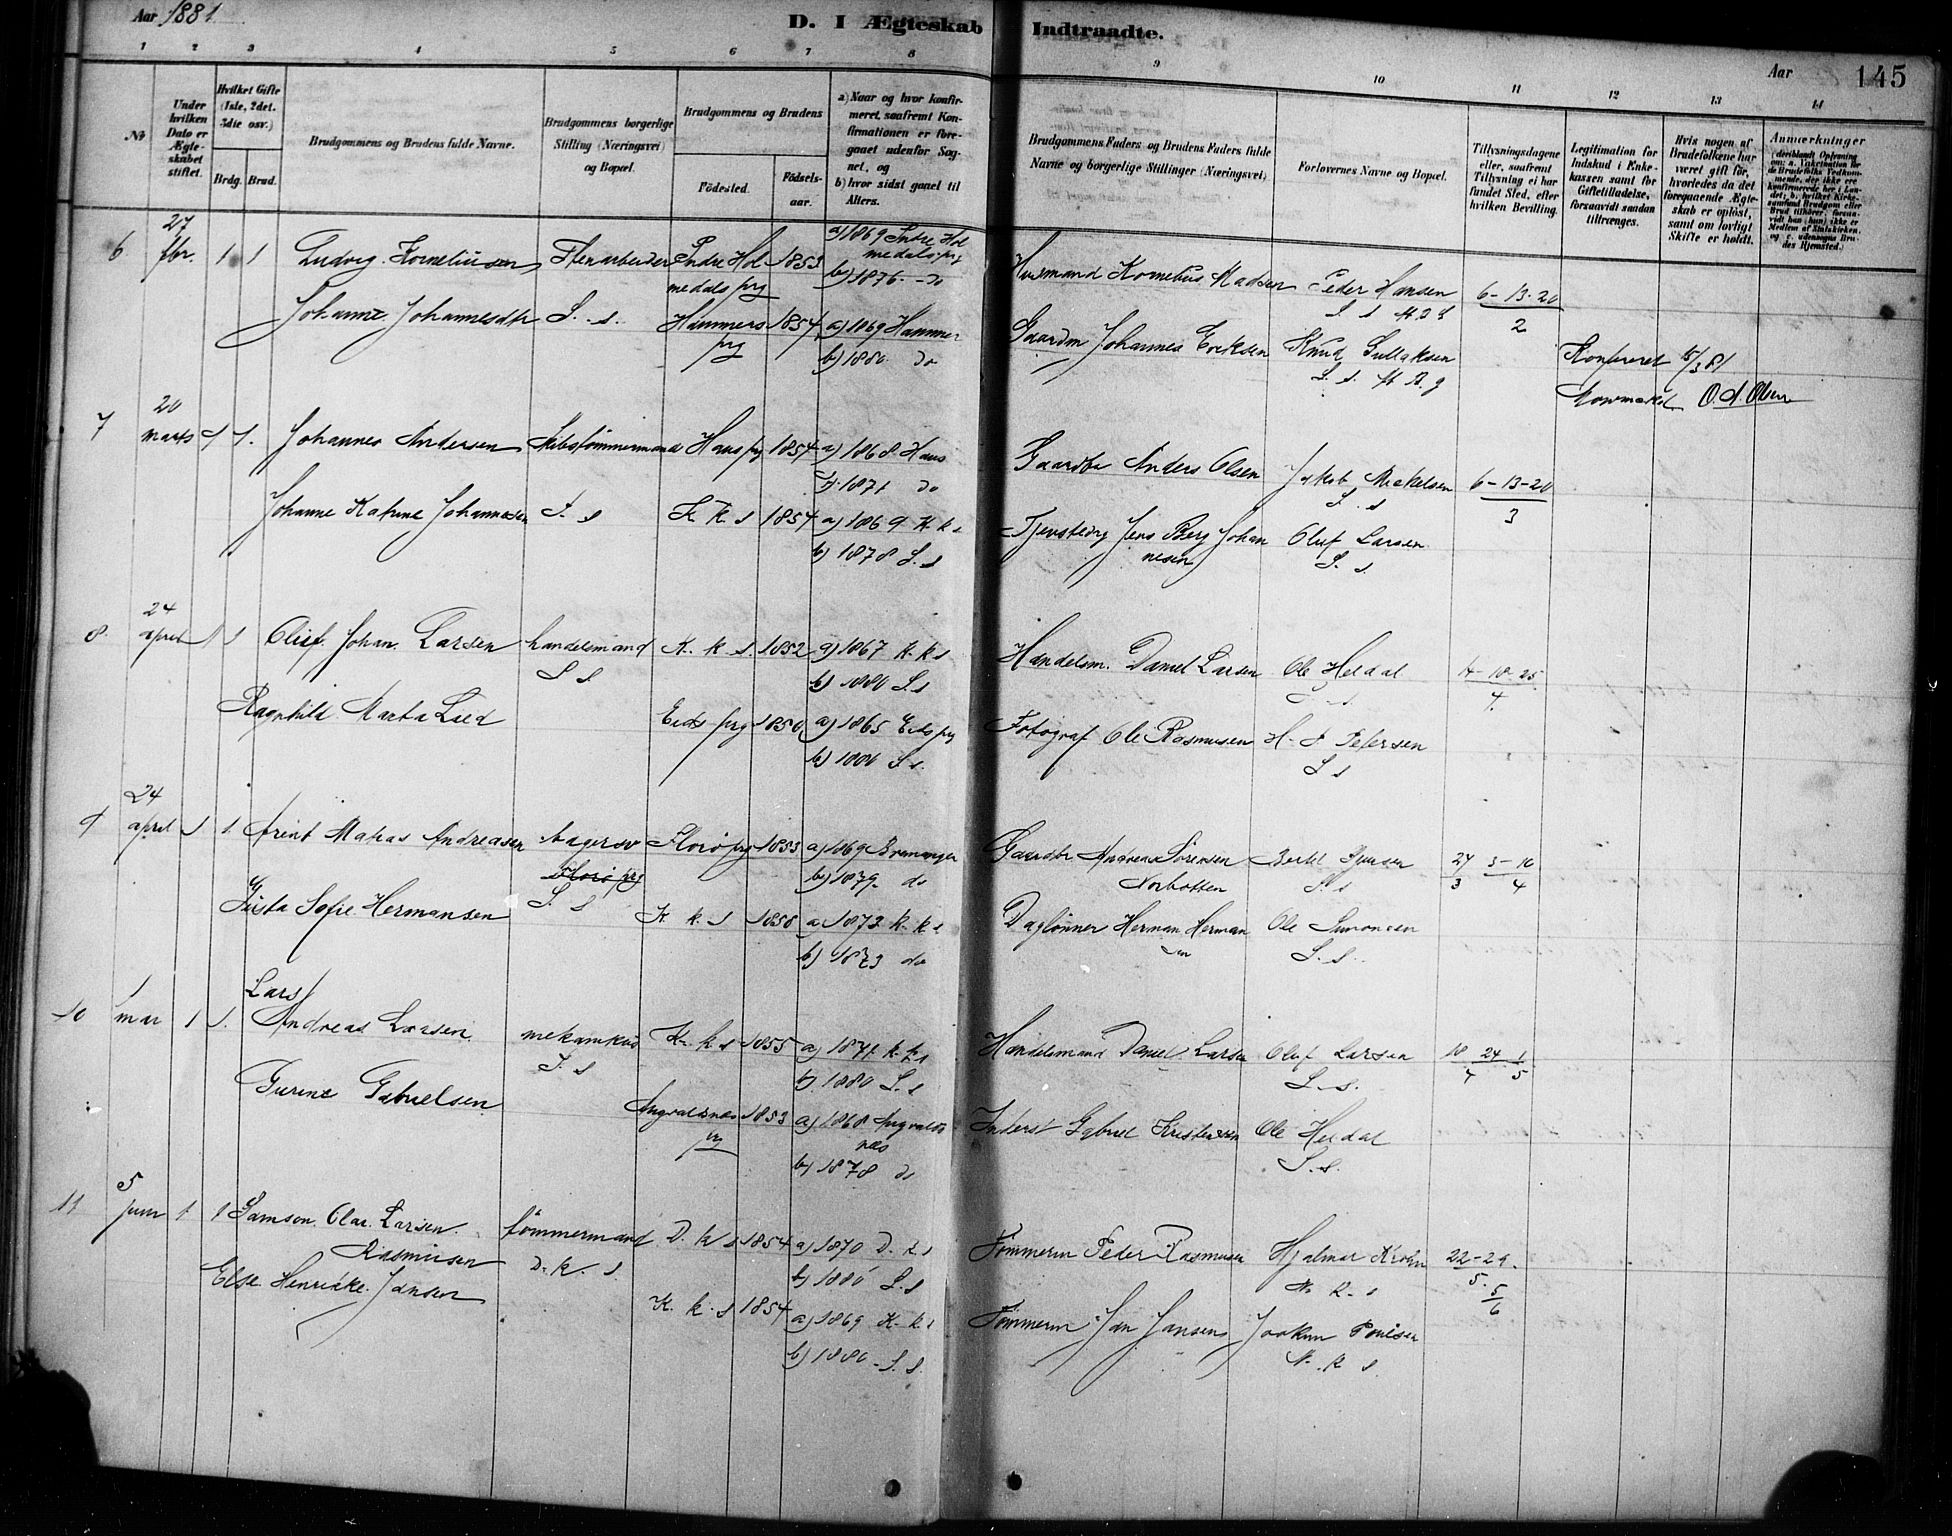 Aar 1881
D. I Ægteskab Indtraadte.
Aar 145
1 2 3 4 5 6 7 8 9 10 11 12 13 14
No
Under hvilken Dato er Ægteskabet stiftet.
Hvilket Gifte (1ste, 2det. 3die osv.)
Brdg. Brud.
Brudgommens og Brudens fulde Navne.
Brudgommens borgerlige Stilling (Næringsvei) og Bopæl.
Brudgommens og Brudens
Födested.
Födsels-aar.
a) Naar og hvor konfirmeret, saafremt Konfirmationen er foregaaet udenfor Sognet, og
b) hvor sidst gaaet til Alters.
Brudgommens Faders og Brudens Faders fulde Navne og borgerlige Stillinger (Næringsvei)
Forlovernes Navne og Bopæl.
Tillysningsdagene eller, saafremt Tillysning ei har fundet Sted, efter hvilken Bevilling.
Legitimation for Indskud i Enkekassen samt for Giftetilladelse, forsaavidt saadan tiltrænges.
Hvis nogen af Brudefolkene har været gift för, hvorledes da det foregaaende Ægteskab er oplöst, samt om lovligt Skifte er holdt.
Anmærkninger
6 27 fbr. 1 1 Ludvig Korneliusen Stenarbeider Indre Hol 1853 a) 1869 Indre Hol
medals prg medals prg
b) 1876 do
Husmand Kornelius Madsen Peder Hansen 6-13-20
2
Johanne Johannesdtr S. s. Hammers 1854 a) 1869 Hammer
prg b) 1880 do
Gaardm Johannes Eriksen Knud Gullaksen
Konfereret 15/3 81
O. A. Olsen
7 20 marts 1 1. Johannes Andersen Skibstömmermand Haus prg 1854 a) 1868 Haus
b) 1871 do
Gaardbr Anders Olsen Jakob Mikelsen 6-13-20
S. s 3
Johanne Katrine Johannesen S. s K. k. s 1854 a) 1869 K. k s
b) 1878 S. s
Jens Berg Johan Oluf Larsen
nesen S. s.
8. 24 april 1 1 Oluf Johan Larsen handelsmand K. k. s. 1852 a) 1867 K. k s
S s. b) 1880 S. s
Handelsm. Daniel Larsen Ole Heldal
4
Ragnhild Marta Lied Eids prg 1850 a) 1865 Eids prg
b) 1880 S s.
Fotograf Ole Rasmusen H. J. Petersen
S s
9 24 april 1 1. Arent Matias Andreasen Florö prg 1853 a) 1869 Bremanger
Florö prg b) 1879 do
S. s
Gaardbr Andreas Sörensen
Norbotten S. s
27 3-10
3 4
Gusta Sofie Hermansen K. k. s 1858 a) 1873 k. k s
b) 1873 do
Daglönner Herman Herman Ole Simonsen
sen S. s.
Lars
10 1 mai 1 1. Andreas Larsen mekanikus K. k s 1855 a) 1871 k. k s
S. s b) 1880 S. s
Handelsmand Daniel Larsen Oluf Larsen 18 24 1
S. s. 4 5
Gurine Gabrielsen Augvaldsnes 1853 a) 1868 Augvalds
prg nes
b) 1878 do
Inderst Gabriel Kristensen Ole Heldal
S. s.
11 5 juni 1 1 Samson Olai Larsen tömmermand D. k s 1854 a) 1870 D. k s
Rasmusen D. k. s. b) 1880 S. s
Tömmerm Peder Rasmusen Hjalmar Krohn 22-29.
N. K. s 5. 5
6
Else Henrikke Jansen K. k. s 1854 a) 1869 K. k s
b) 1880 S. s.
Tömmerm Jan Jansen Joakim Poulsen
N. K s